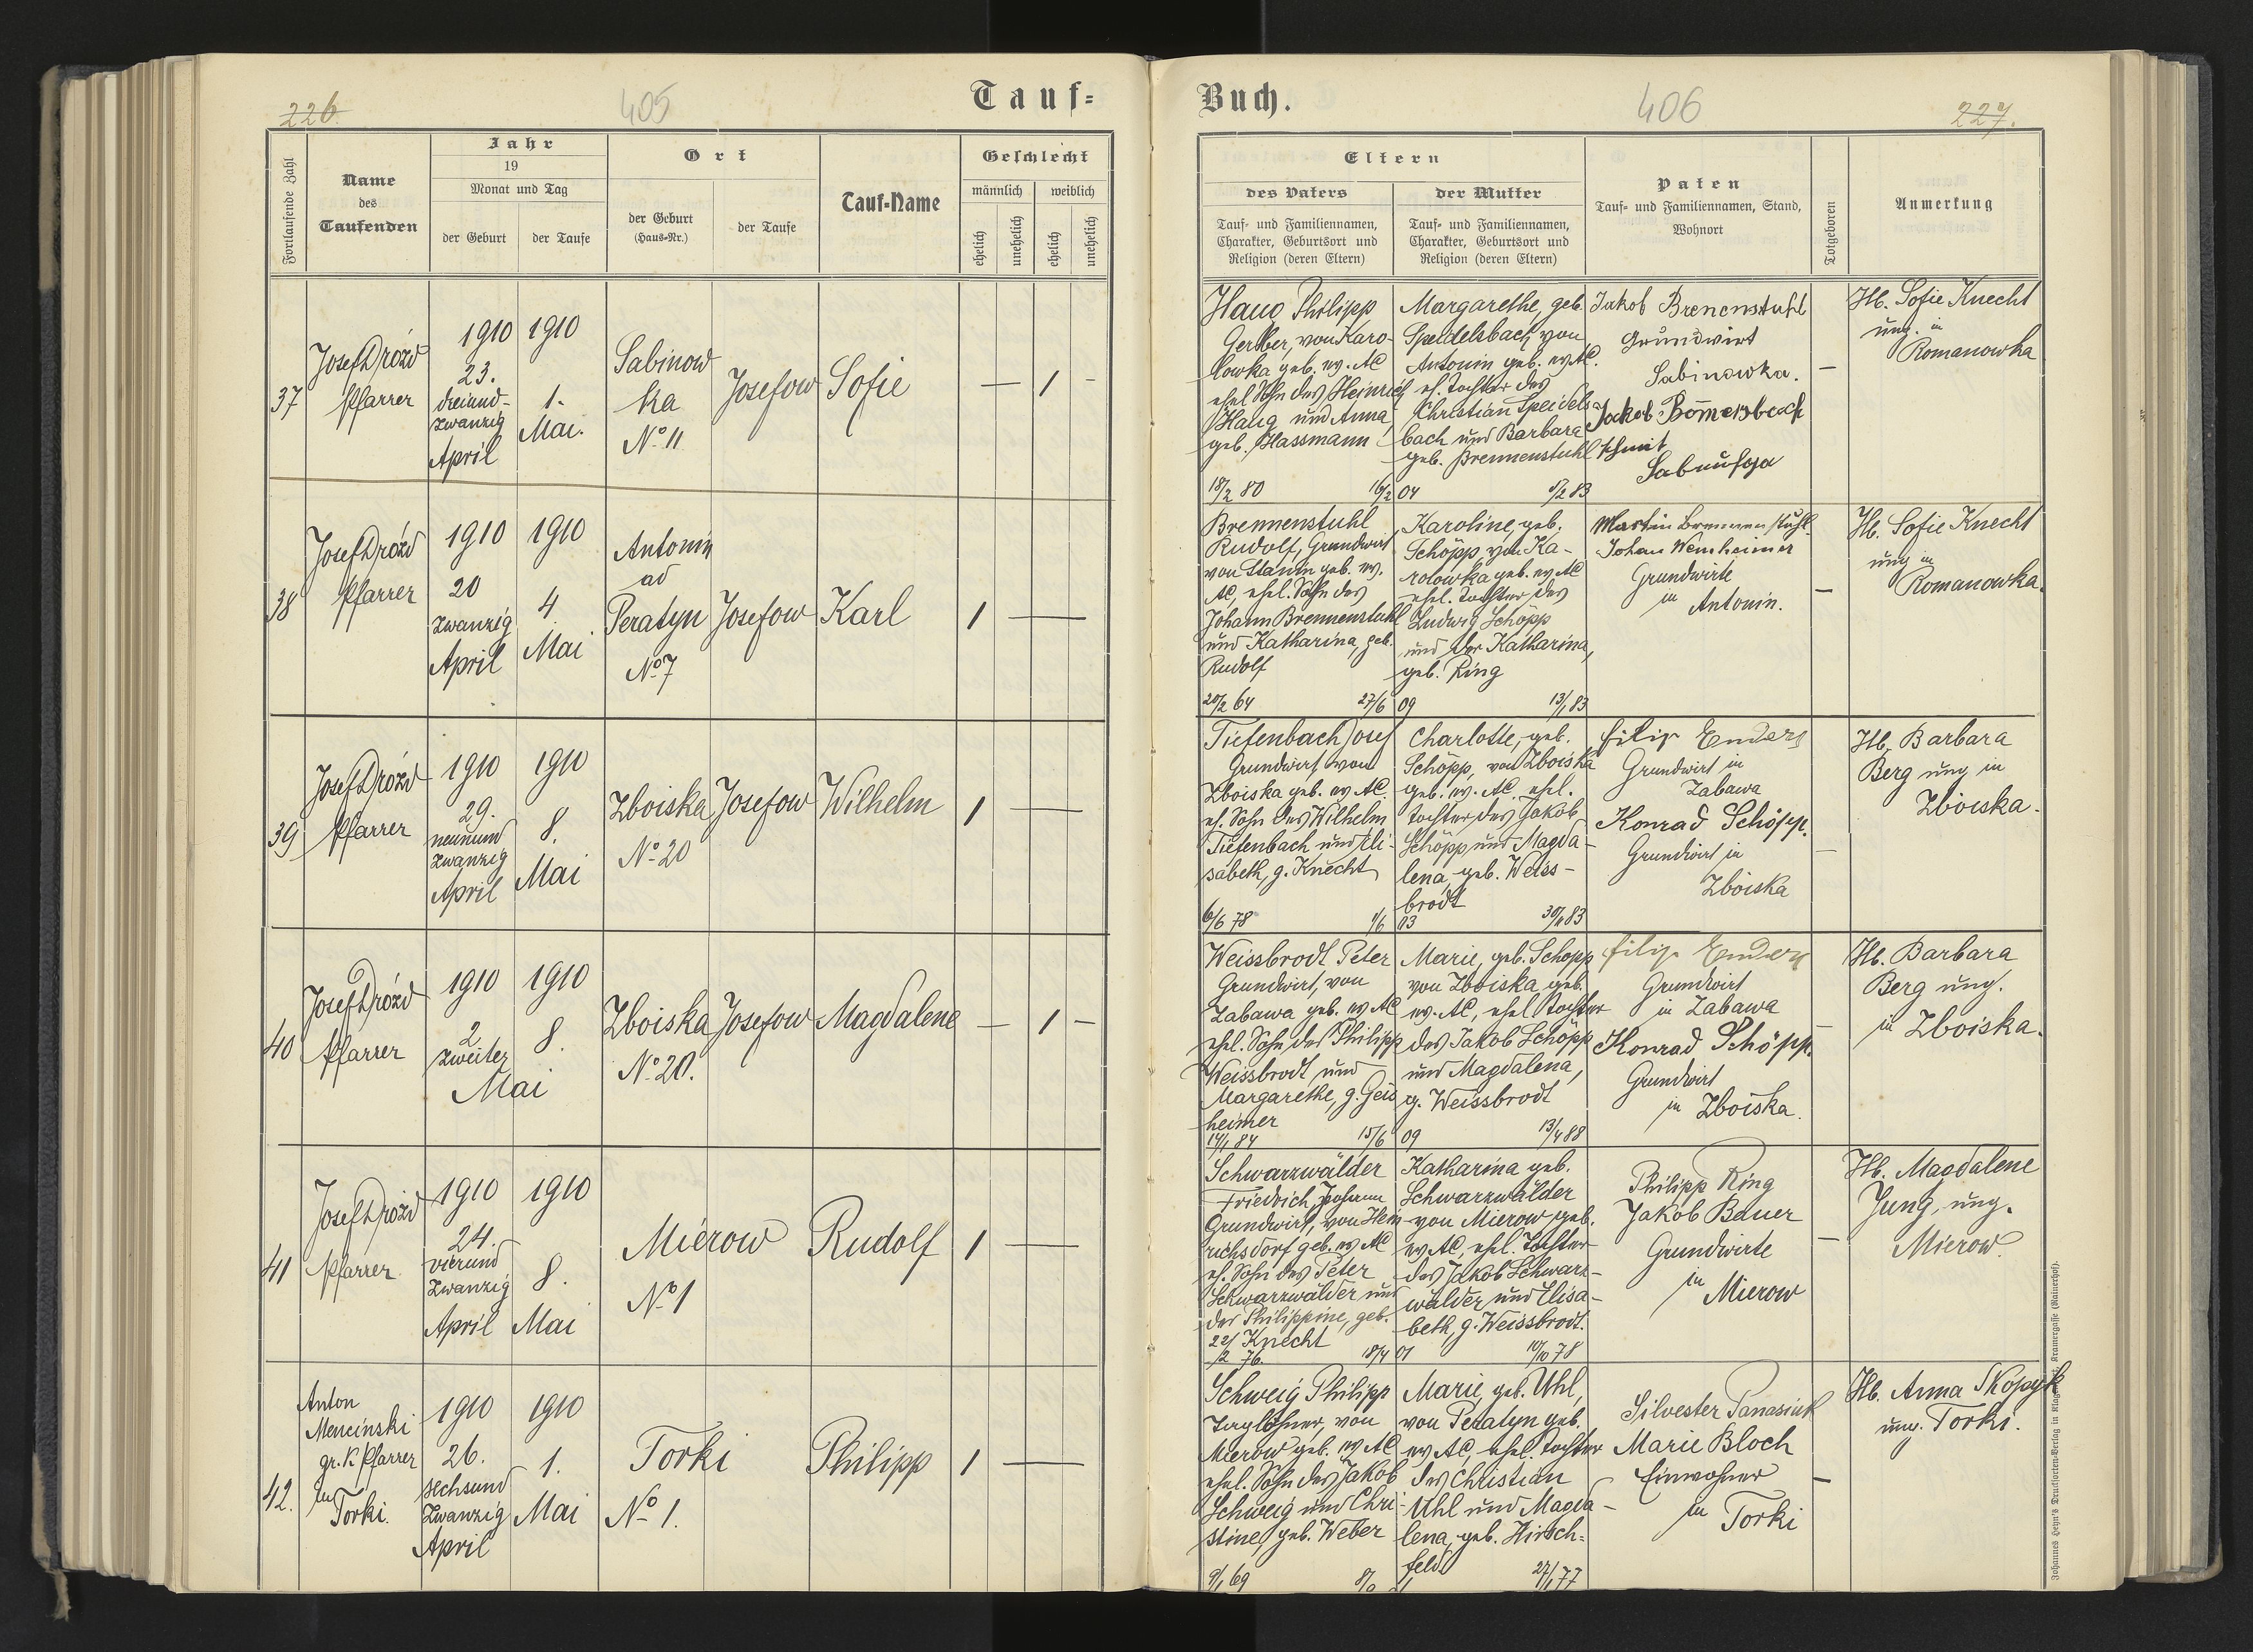 226.
405
Tauf=
Fortlaufende Zahl
Name
des
Taufenden
Jahr
19
Monat und Tag
der Geburt
der Taufe
Ort
der Geburt
(Haus-Nr.)
der Taufe
Tauf-Name
Geschlecht
männlich
weiblich
ehelich
unehelich
ehelich
unehelich
37
Josef Drózd
Pfarrer
1910
23.
dreiund-
zwanzig
April
1910
1.
Mai.
Sabinow
ka
No. 11
Josefow
Sofie
— 1 -
38
Josef Drózd
Pfarrer
1910
20
zwanzig
April
1910
4
Mai
Antonin
ad
Peratyn
No 7
Josefow
Karl
1 —
39
Josef Drózd
Pfarrer
1910
29.
neunund
zwanzig
April
1910
8.
Mai
Zboiska
No. 20
Josefow
Wilhelm
1 —
40
Josef Drózd
Pfarrer
1910
2
zweiter
Mai
1910
8.
Zboiska
No. 20.
Josefow
Magdalene
— 1 —
41
Josef Drózd
Pfarrer
1910
24.
vierund
zwanzig
April
1910
8.
Mai
Mierow
No 1
Rudolf
1 —
42.
Anton
Mencinski
gr. K Pfarrer
in
Torki.
1910
26.
sechsund
zwanzig
April
1910
1.
Mai
Torki
No 1.
Philipp
1 —
Buch.
406
227.
Eltern
des Vaters
Tauf- und Familiennamen,
Charakter, Geburtsort und
Religion (deren Eltern)
der Mutter
Tauf- und Familiennamen,
Charakter, Geburtsort und
Religion (deren Eltern)
Paten
Tauf- und Familiennamen, Stand,
Wohnort
Totgeboren
Anmerkung
Haug Philipp
Gerber, von Karo-
lowka geb. ev. AC
ehel Sohn des Heinrich
Haug und Anna,
geb. Hassmann
18/2 80
16/2 04
Margarethe, geb.
Speidelsbach von
Antonin geb. ev AC.
eh. Tochter des
Christian Speidels-
bach und Barbara
geb. Brennenstuhl
5/2 83
Jakob Brenenstuhl
Grundwirt
Sabinowka.
Jakob Bomersbach
Schmit
—
Hb. Sofie Knecht
ung. in
Romanowka
Brennenstuhl
Rudolf, Grundwirt
von Stanin geb. ev.
AC, ehel. Sohn des
Johann Brennenstuhl
und Katharina, geb.
Rudolf
20/2 64
27/6 09
Karoline, geb.
Schöpp, von Ka-
rolowka geb. ev AC
ehel. Tochter des
Ludwig Schöpp
und der Katharina,
geb. Ring
13/1 83
Martin Brennenstuhl
Johan Wenheimer
Grundwirte
in
Antonin.
—
Hb. Sofie Knecht
ung in
Romanowka.
Tiefenbach Josef
Grundwirt von
Zboiska geb. ev AC.
eh. Sohn des Wilhelm
Tiefenbach und Eli-
sabeth, g. Knecht
6/6 78
1/6 03
Charlotte, geb.
Schöpp, von Zboiska
geb. ev. AC, ehel.
Tochter des Jakob
Schöpp und Magda-
lena, geb. Weiss-
brodt
Filip Enders
Grundwirt in
Zabawa
Konrad Schöpp.
Grundwirt in
Zboiska
—
Hb, Barbara
Berg ung in
Zboiska.
Weissbrodt Peter
Grundwirt, von
Zabawa geb. ev AC
ehel. Sohn des Philipp
Weissbrodt und
Margarethe, g. Geis
heimer
15/6 09
Marie, geb. Schöpp
von Zboiska geb.
ev. AC, ehel Tochter
des Jakob Schöpp
und Magdalena,
g. Weissbrodt
13/4 88
Filip Enders
Grundwirt
in Zabawa
Konrad Schöpp.
Grundwirt
in Zboiska.
—
Hb. Barbara
Berg ung.
in Zboiska.
Schwarzwälder
Friedrich, Johann
Grundwirt, von Hein
richsdorf geb. ev AC
eh. Sohn des Peter
Schwarzwälder und
der Philippine, geb.
Knecht
22/2 76.
18/4 01
Katharina geb.
Schwarzwälder
von Mierow geb.
ev AC, ehel. Tochter
des Jakob Schwarz-
wälder und Elisa-
beth, g. Weissbrodt.
10/10 78
Philipp Ring
Jakob Bauer
Grundwirte
in
Mierow
—
Hb. Magdalene
Jung, ung.
Mierow.
Schweig Philipp
Taglöhner, von
Mierow geb. ev AC
ehel. Sohn des Jakob
Schweig und Chri-
stine, geb. Weber
9/1 69
Marie, geb. Uhl,
von Peratyn geb.
ev AC, ehel. Tochter
des Christian
Uhl und Magda-
lena, geb. Hirsch-
feld
27/1 77
Silvester Panasiuk
Marie Bloch
Einwohner
in
Torki
—
Hb. Anna Skopczyk
ung. Torki.
Johannes Heyn's Drucksorten-Verlag in Klagenfurt, Kramergasse (Rainerhof).